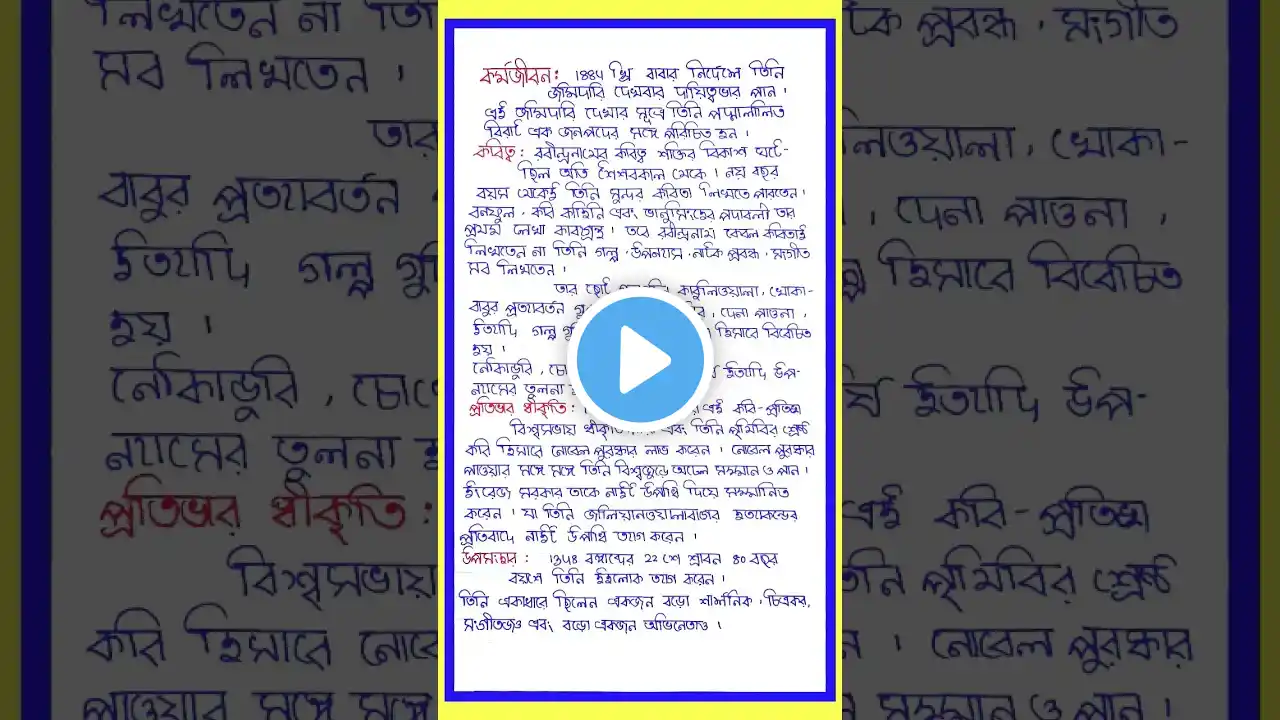 কর্মজীবন: 1884 খ্রি বাবার নির্দেশে তিনি
জমিদারি দেখবার দায়িত্বভার পান।
এই জমিদারি দেখার সূত্রে তিনি পদ্মালালিত
বিরাট এক জনপদের সঙ্গে পরিচিত হন।
কবিত্ব: রবীন্দ্রনাথের কবিত্ব শক্তির বিকাশ ঘটে-
ছিল অতি শৈশবকাল থেকে। নয় বছর
বয়স থেকেই তিনি সুন্দর কবিতা লিখতে পারতেন।
বনফুল, কবি কাহিনি এবং ভানুসিংহের পদাবলী তার
প্রথম লেখা কাব্যগ্রন্থ। তবে রবীন্দ্রনাথ কেবল কবিতাই
লিখতেন না তিনি গল্প, উপন্যাস, নাটক প্রবন্ধ, সংগীত
সব লিখতেন।
তার ছোট কাবুলিওয়ালা, খোকা-
বাবুর প্রত্যাবর্তন, দেনা পাওনা,
ইত্যাদি গল্প হিসাবে বিবেচিত
হয়।
নৌকাডুবি, ইত্যাদি উপ-
ন্যাসের তুলনা
প্রতিভার স্বীকৃতি: এই কবি-প্রতিভা
বিশ্বসভায় স্বীকৃতি এবং তিনি পৃথিবীর শ্রেষ্ঠ
কবি হিসাবে নোবেল পুরস্কার লাভ করেন। নোবেল পুরস্কার
পাওয়ার সঙ্গে সঙ্গে তিনি বিশ্বজুড়ে অঢেল সম্মান ও পান।
ইংরেজ সরকার তাকে নাইট উপাধি দিয়ে সম্মানিত
করেন। যা তিনি জালিয়ানওয়ালাবাগের হত্যাকান্ডের
প্রতিবাদে নাইট উপাধি ত্যাগ করেন।
উপসংহার: 1348 বঙ্গাব্দের 22 শে শ্রাবন 80 বছর
বয়সে তিনি ইহলোক ত্যাগ করেন।
তিনি একাধারে ছিলেন একজন বড়ো দার্শনিক, চিত্রকর,
সংগীতজ্ঞ এবং বড়ো একজন অভিনেতাও।